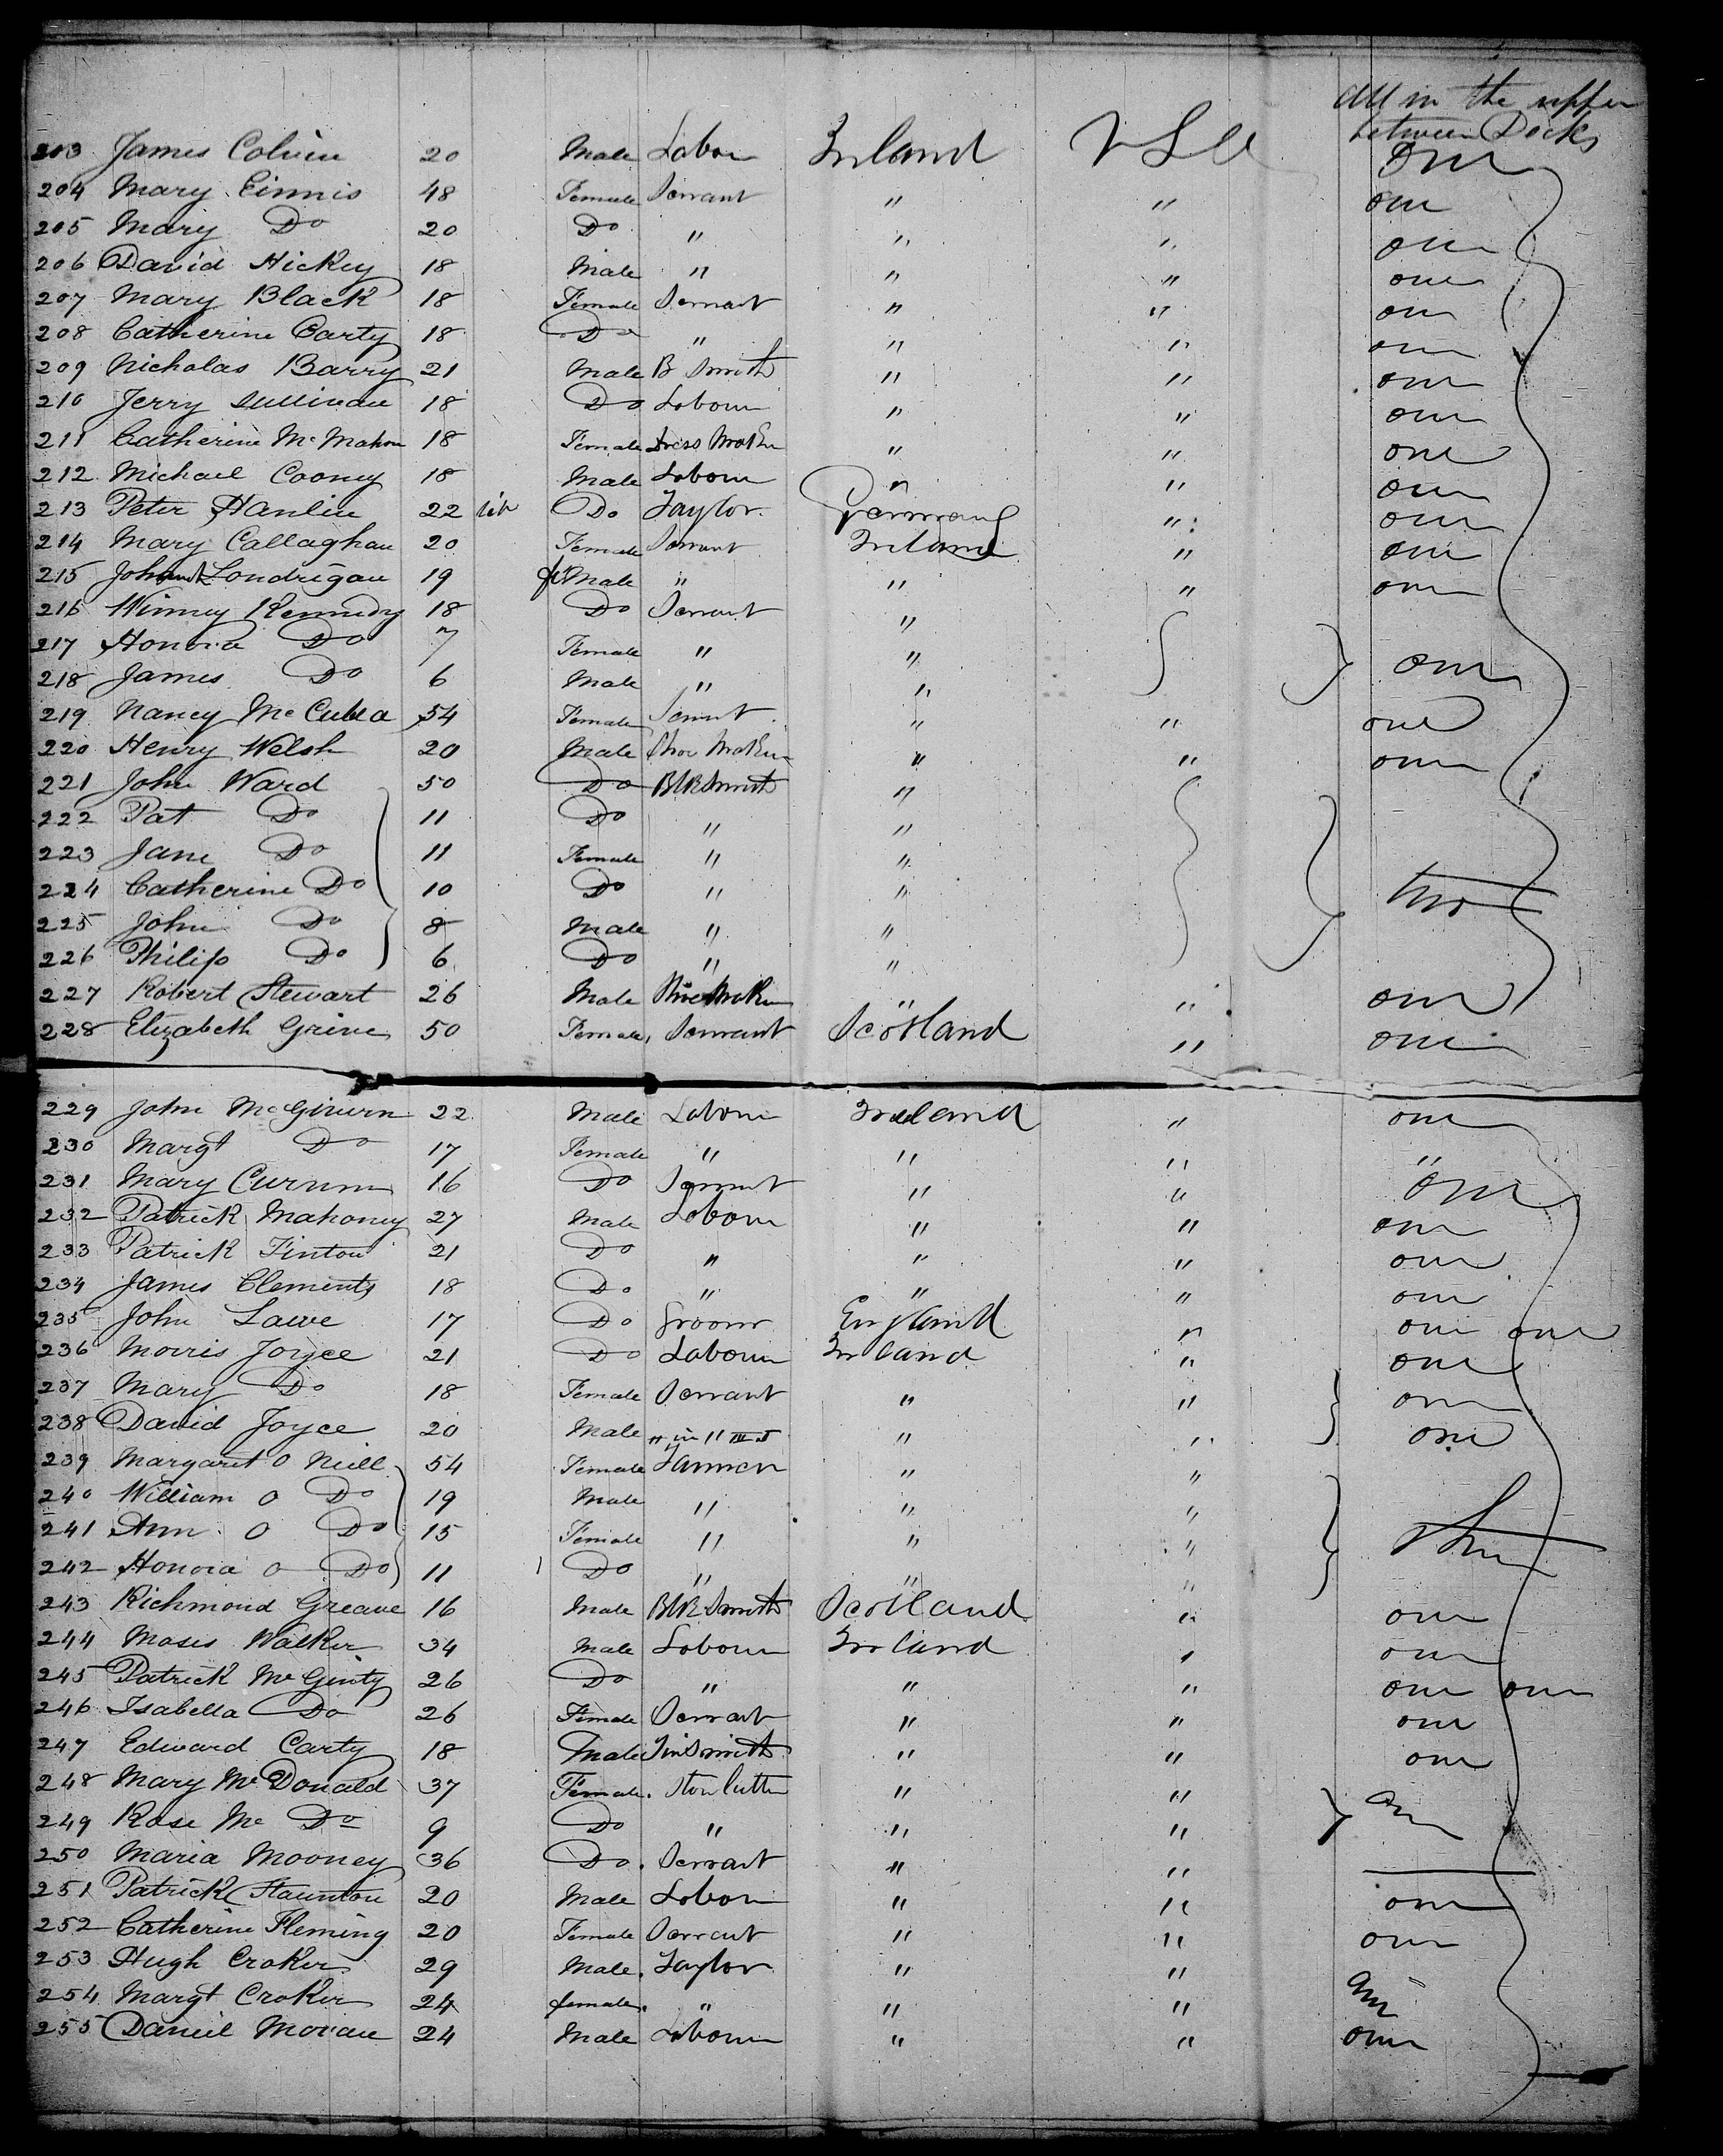 All in the upper
between Decks
203 James Colvin 20 Male Labour Ireland U S A one
204 Mary Einnis 48 Female Servant " " one
205 Mary Do 20 Do " " " one
206 David Hickey 18 Male " " " one
207 Mary Black 18 Female Servant " " one
208 Catherine Carty 18 Do " " " one
209 Nicholas Barry 21 Male B Smith " " one
210 Jerry Sullivan 18 Do Labour " " one
211 Catherine McMahon 18 Female Dress Maker " " one
212 Michael Cooney 18 Male Labour " " one
213 Peter Hanlin 22 Do Taylor Germany " one
214 Mary Callaghan 20 Female Servant Ireland " one
215 Londrigan 19 feMale " " " one
216 Winney Kennedy 18 Do Servant "
217 Honora Do 7 Female " "
218 James Do 6 Male " " one
219 Nancy McCubla 54 Female Servnt " " one
220 Henry Welsh 20 Male Shoe Maker " " one
221 John Ward 50 Do Blk Smith "
222 Pat Do 11 Do " "
223 Jane Do 11 Female " "
224 Catherine Do 10 Do " " two
225 John Do 8 Male " "
226 Philip Do 6 Do " "
227 Robert Stewart 26 Male Shoe Maker " " one
228 Elizabeth Grive 50 Female Servant Scotland " one
229 John McGivern 22 Male Labour Ireland " one
230 Margt Do 17 Female " " " "
231 Mary Curnin 16 Do Servant " " one
232 Patrick Mahoney 27 Male Labour " " one
233 Patrick Finton 21 Do " " " one
234 James Clements 18 Do " " " one
235 John Lawe 17 Do Groom England " one one
236 Morris Joyce 21 Do Labour Ireland " one
237 Mary Do 18 Female Servant " " one
238 David Joyce 20 Male " " one
239 Margaret O Neill 54 Female " "
240 William O Do 19 Male " " "
241 Ann O Do 15 Female " " "
242 Honora O Do 11 Do " " "
243 Richmond Greave 16 Male Blk Smith Scotland " one
244 Moses Walker 34 Male Labour Ireland " one
245 Patrick McGinty 26 Do " " " one one
246 Isabella Do 26 Female Servant " " one
247 Edward Carty 18 Male TinSmith " " one
248 Mary McDonald 37 Female Ston Cutter " "
249 Rose Mc Do 9 Do " " " one
250 Maria Mooney 36 Do Servant " "
251 Patrick Staunton 20 Male Labour " " one
252 Catherine Fleming 20 Female Servant " " one
253 Hugh Croker 29 Male Taylor " "
254 Margt Croker 24 female " " " one
255 Daniel Moran 24 Male Labour " " one